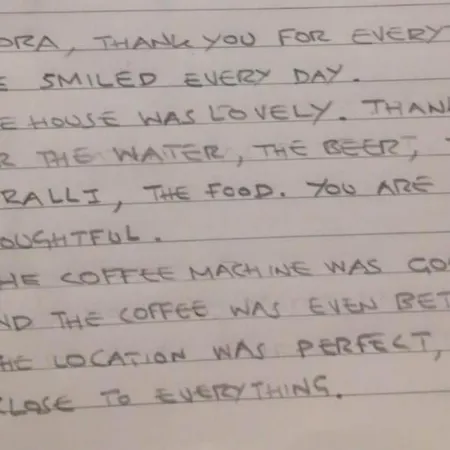 ORA, THANK YOU FOR EVERYT
E SMILED EVERY DAY.
E HOUSE WAS LOVELY. THANK
R THE WATER, THE BEER, T
RALLI, THE FOOD. YOU ARE
OUGHTFUL.
HE COFFEE MACHINE WAS GOO
ND THE COFFEE WAS EVEN BET
HE LOCATION WAS PERFECT,
CLOSE TO EVERYTHING.